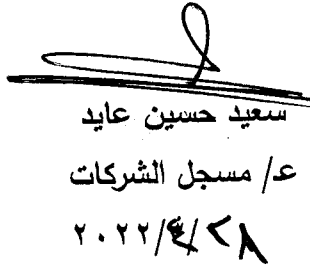 سعيد حسين عايد
ع/ مسجل الشركات
٢٠٢٢/٤/٢٨